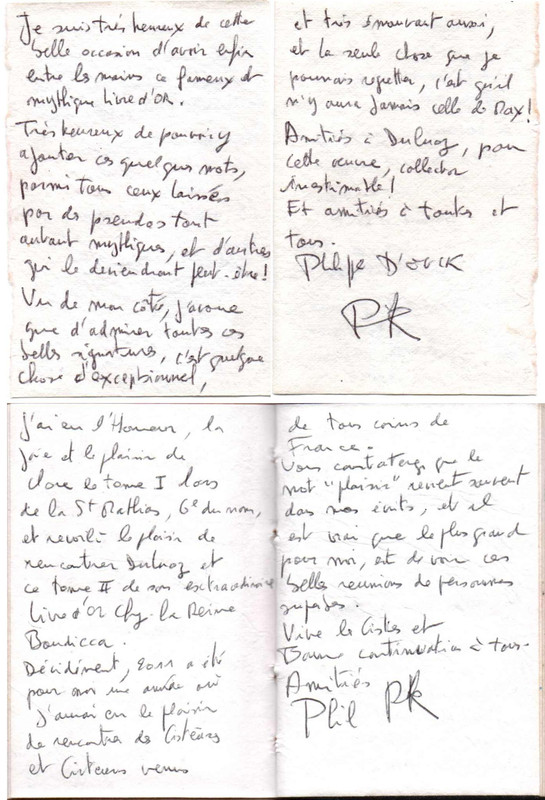 Je suis très heureux de cette
belle occasion d'avoir enfin
entre les mains ce fameux et
mythique Livre d'or.
Très heureux de pouvoir y
ajouter ces quelques mots,
parmi tous ceux laissés
par des pseudos tout
autant mythiques, et d'autres
qui le deviendront peut-être!
Vu de mon côté, j'avoue
que d'admirer toutes ces
belles signatures, c'est quelque
chose d'exceptionnel,
et très émouvant aussi,
et la seule chose que je
pourrais regretter, c'est qu'il
n'y aura jamais celle de Max!
Amitiés à Dulnoz, pour
cette œuvre, collector
inestimable!
Et amitiés à toutes et
tous.
Philippe
PK
J'ai eu l'Honneur, la
joie et le plaisir de
clore le tome I lors
de la St Mathias, 6e du nom,
et revoilà le plaisir de
rencontrer Dulnoz et
ce tome II de son extraordinaire
livre d'or chez la Reine
Boudicca.
Décidément, 2011 a été
pour moi une année où
j'aurai eu le plaisir
de rencontrer des Cistéases
et Cisteurs venus
de tous coins de
France.
Vous constaterez que le
mot "plaisir" revient souvent
dans mes écrits, et il
est vrai que le plus grand
pour moi, est de voir ces
belles réunions de personnes
superbes.
Vive les Cistes et
Bonne continuation à tous.
Amitiés
Phil PK